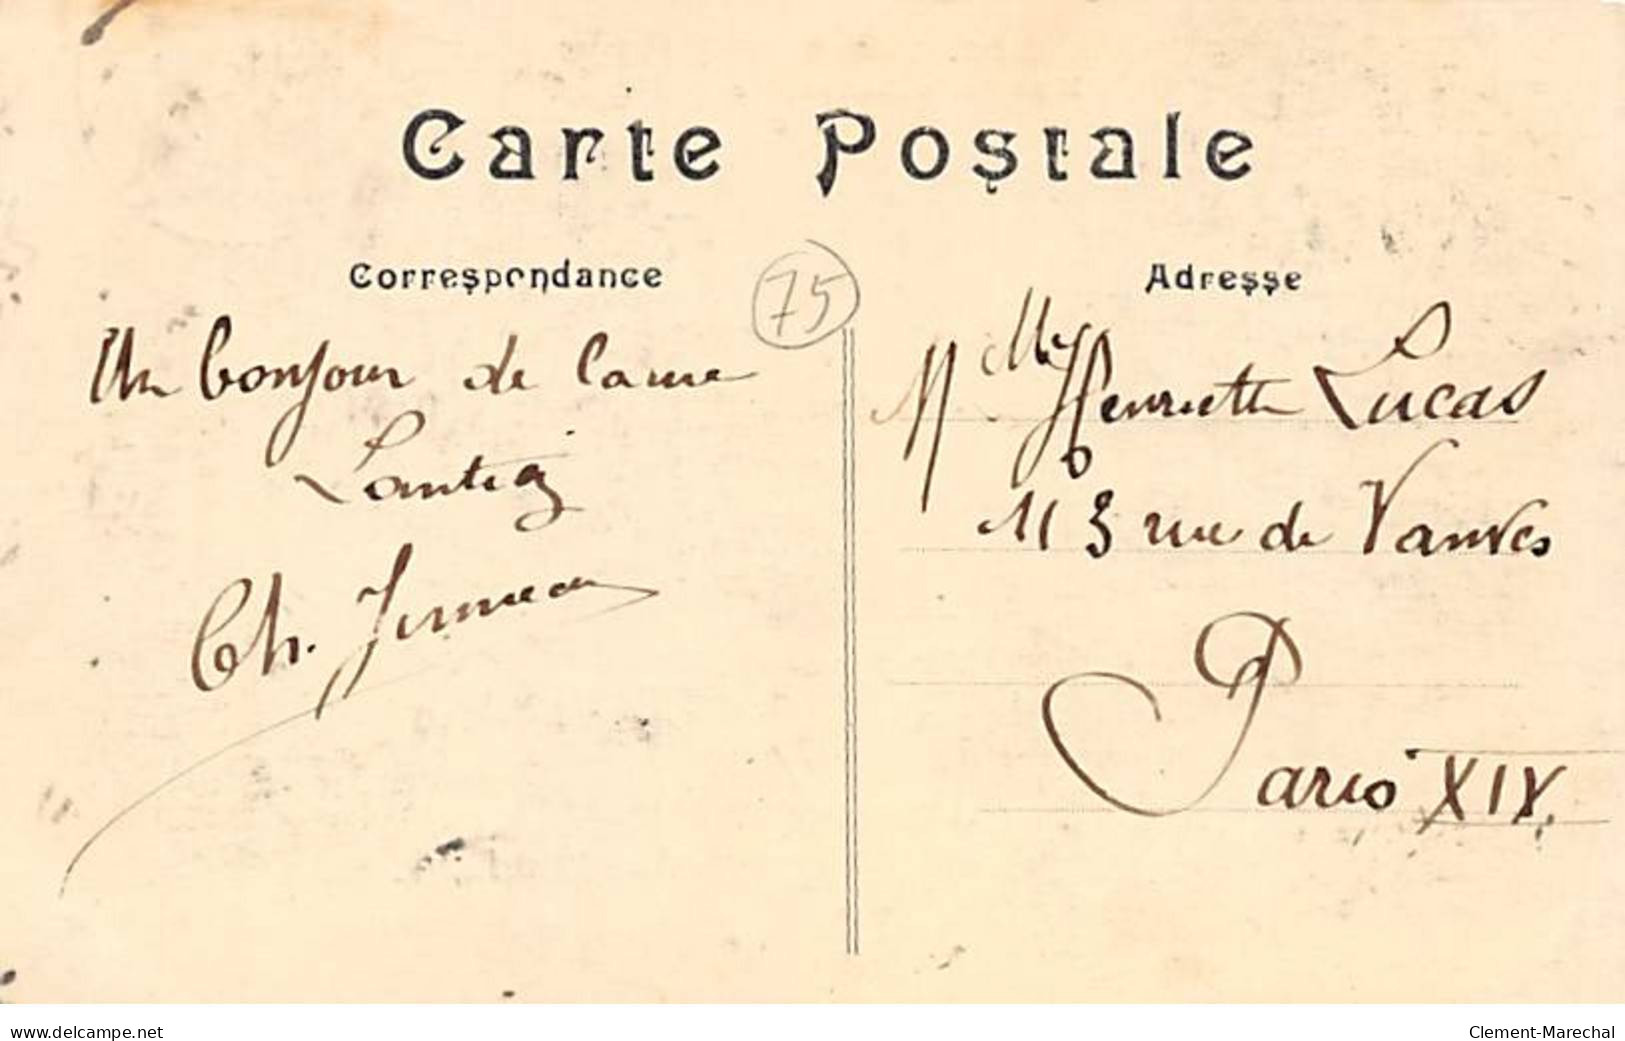 Carte Postale
Correspondance
75
Adresse
Un bonjour de
Ch.
Mlle Henriette Lucas
113 rue de Vanves
Paris XIV.
www.delcampe.net
Clement-Marechal